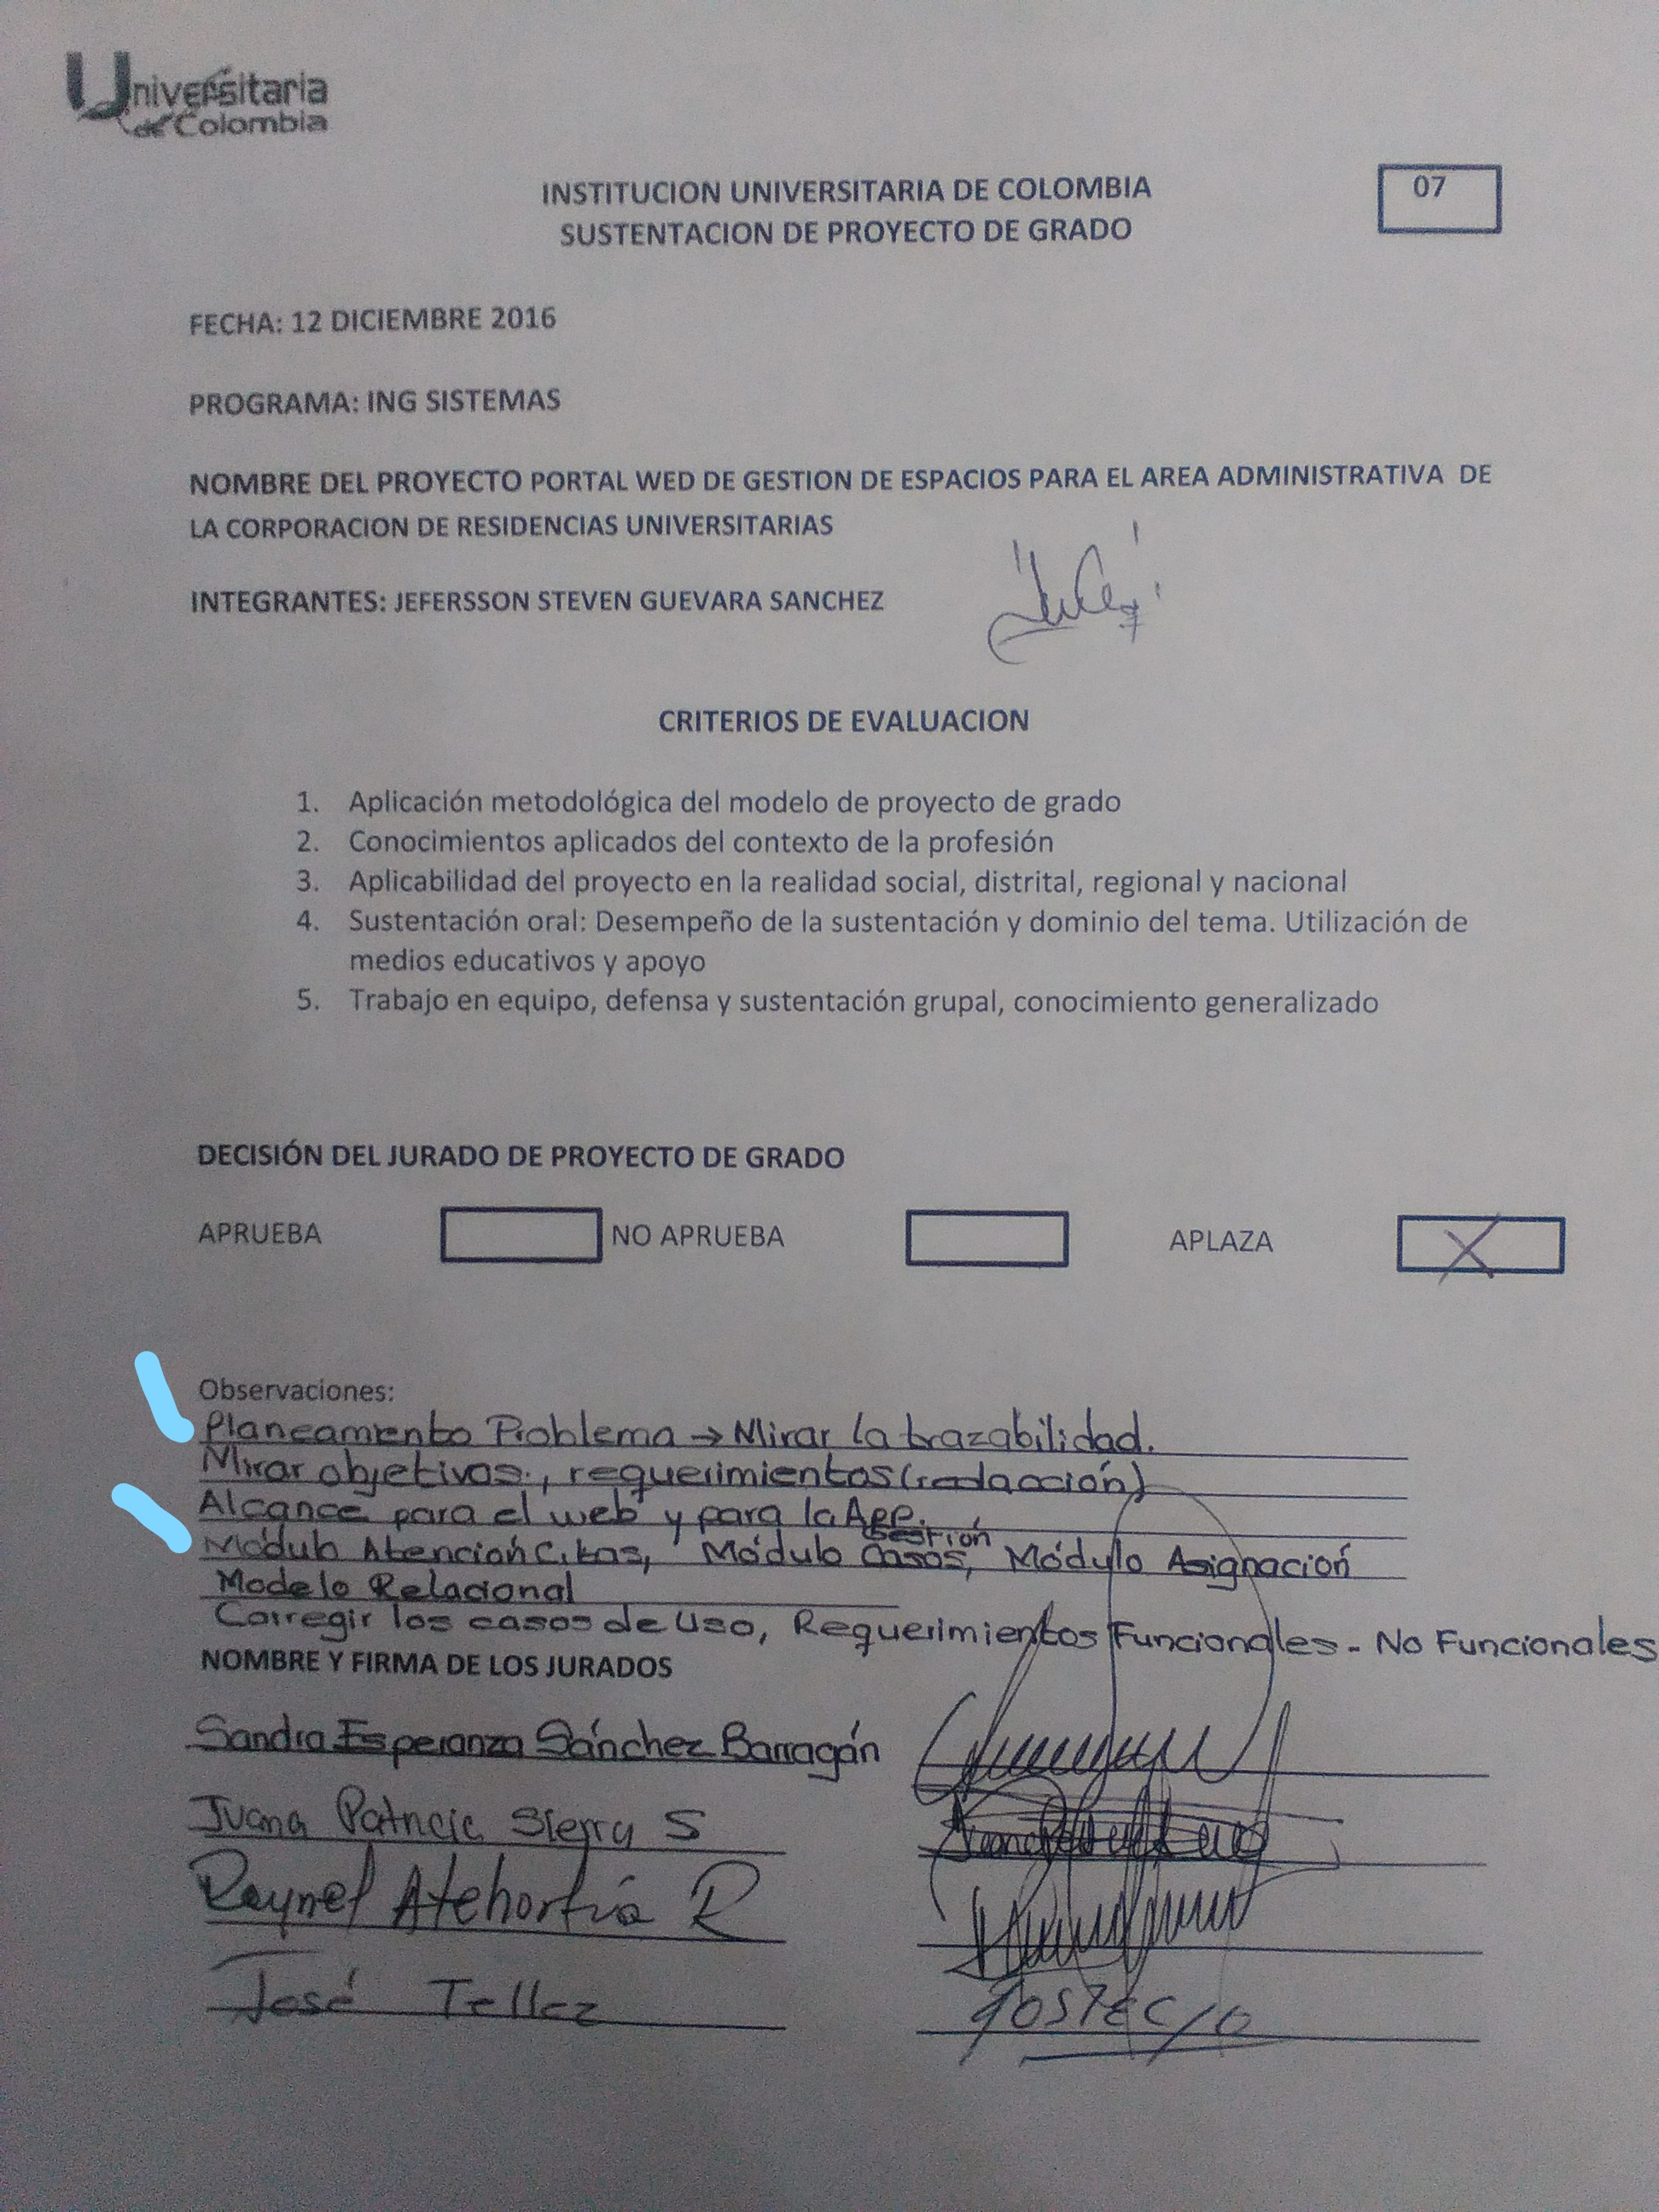 Universitaria
de Colombia
INSTITUCION UNIVERSITARIA DE COLOMBIA
07
SUSTENTACION DE PROYECTO DE GRADO
FECHA: 12 DICIEMBRE 2016
PROGRAMA: ING SISTEMAS
NOMBRE DEL PROYECTO PORTAL WED DE GESTION DE ESPACIOS PARA EL AREA ADMINISTRATIVA DE
LA CORPORACION DE RESIDENCIAS UNIVERSITARIAS
INTEGRANTES: JEFERSSON STEVEN GUEVARA SANCHEZ
CRITERIOS DE EVALUACION
1. Aplicación metodológica del modelo de proyecto de grado
2. Conocimientos aplicados del contexto de la profesión
3. Aplicabilidad del proyecto en la realidad social, distrital, regional y nacional
4. Sustentación oral: Desempeño de la sustentación y dominio del tema. Utilización de
medios educativos y apoyo
5. Trabajo en equipo, defensa y sustentación grupal, conocimiento generalizado
DECISIÓN DEL JURADO DE PROYECTO DE GRADO
APRUEBA NO APRUEBA APLAZA X
Observaciones:
Planeamiento Problema → Mirar la trazabilidad.
Mirar objetivos., requerimientos (redacción)
Alcance para el web y para la App.
Gestión
Módulo Atención Citas, Módulo Casos, Módulo Asignación
Modelo Relacional
Corregir los casos de Uso, Requerimientos Funcionales - No Funcionales
NOMBRE Y FIRMA DE LOS JURADOS
Sandra Esperanza Sánchez Barragán
Juana Patricia Sierra S
Reynel Atehortúa R
José Tellez